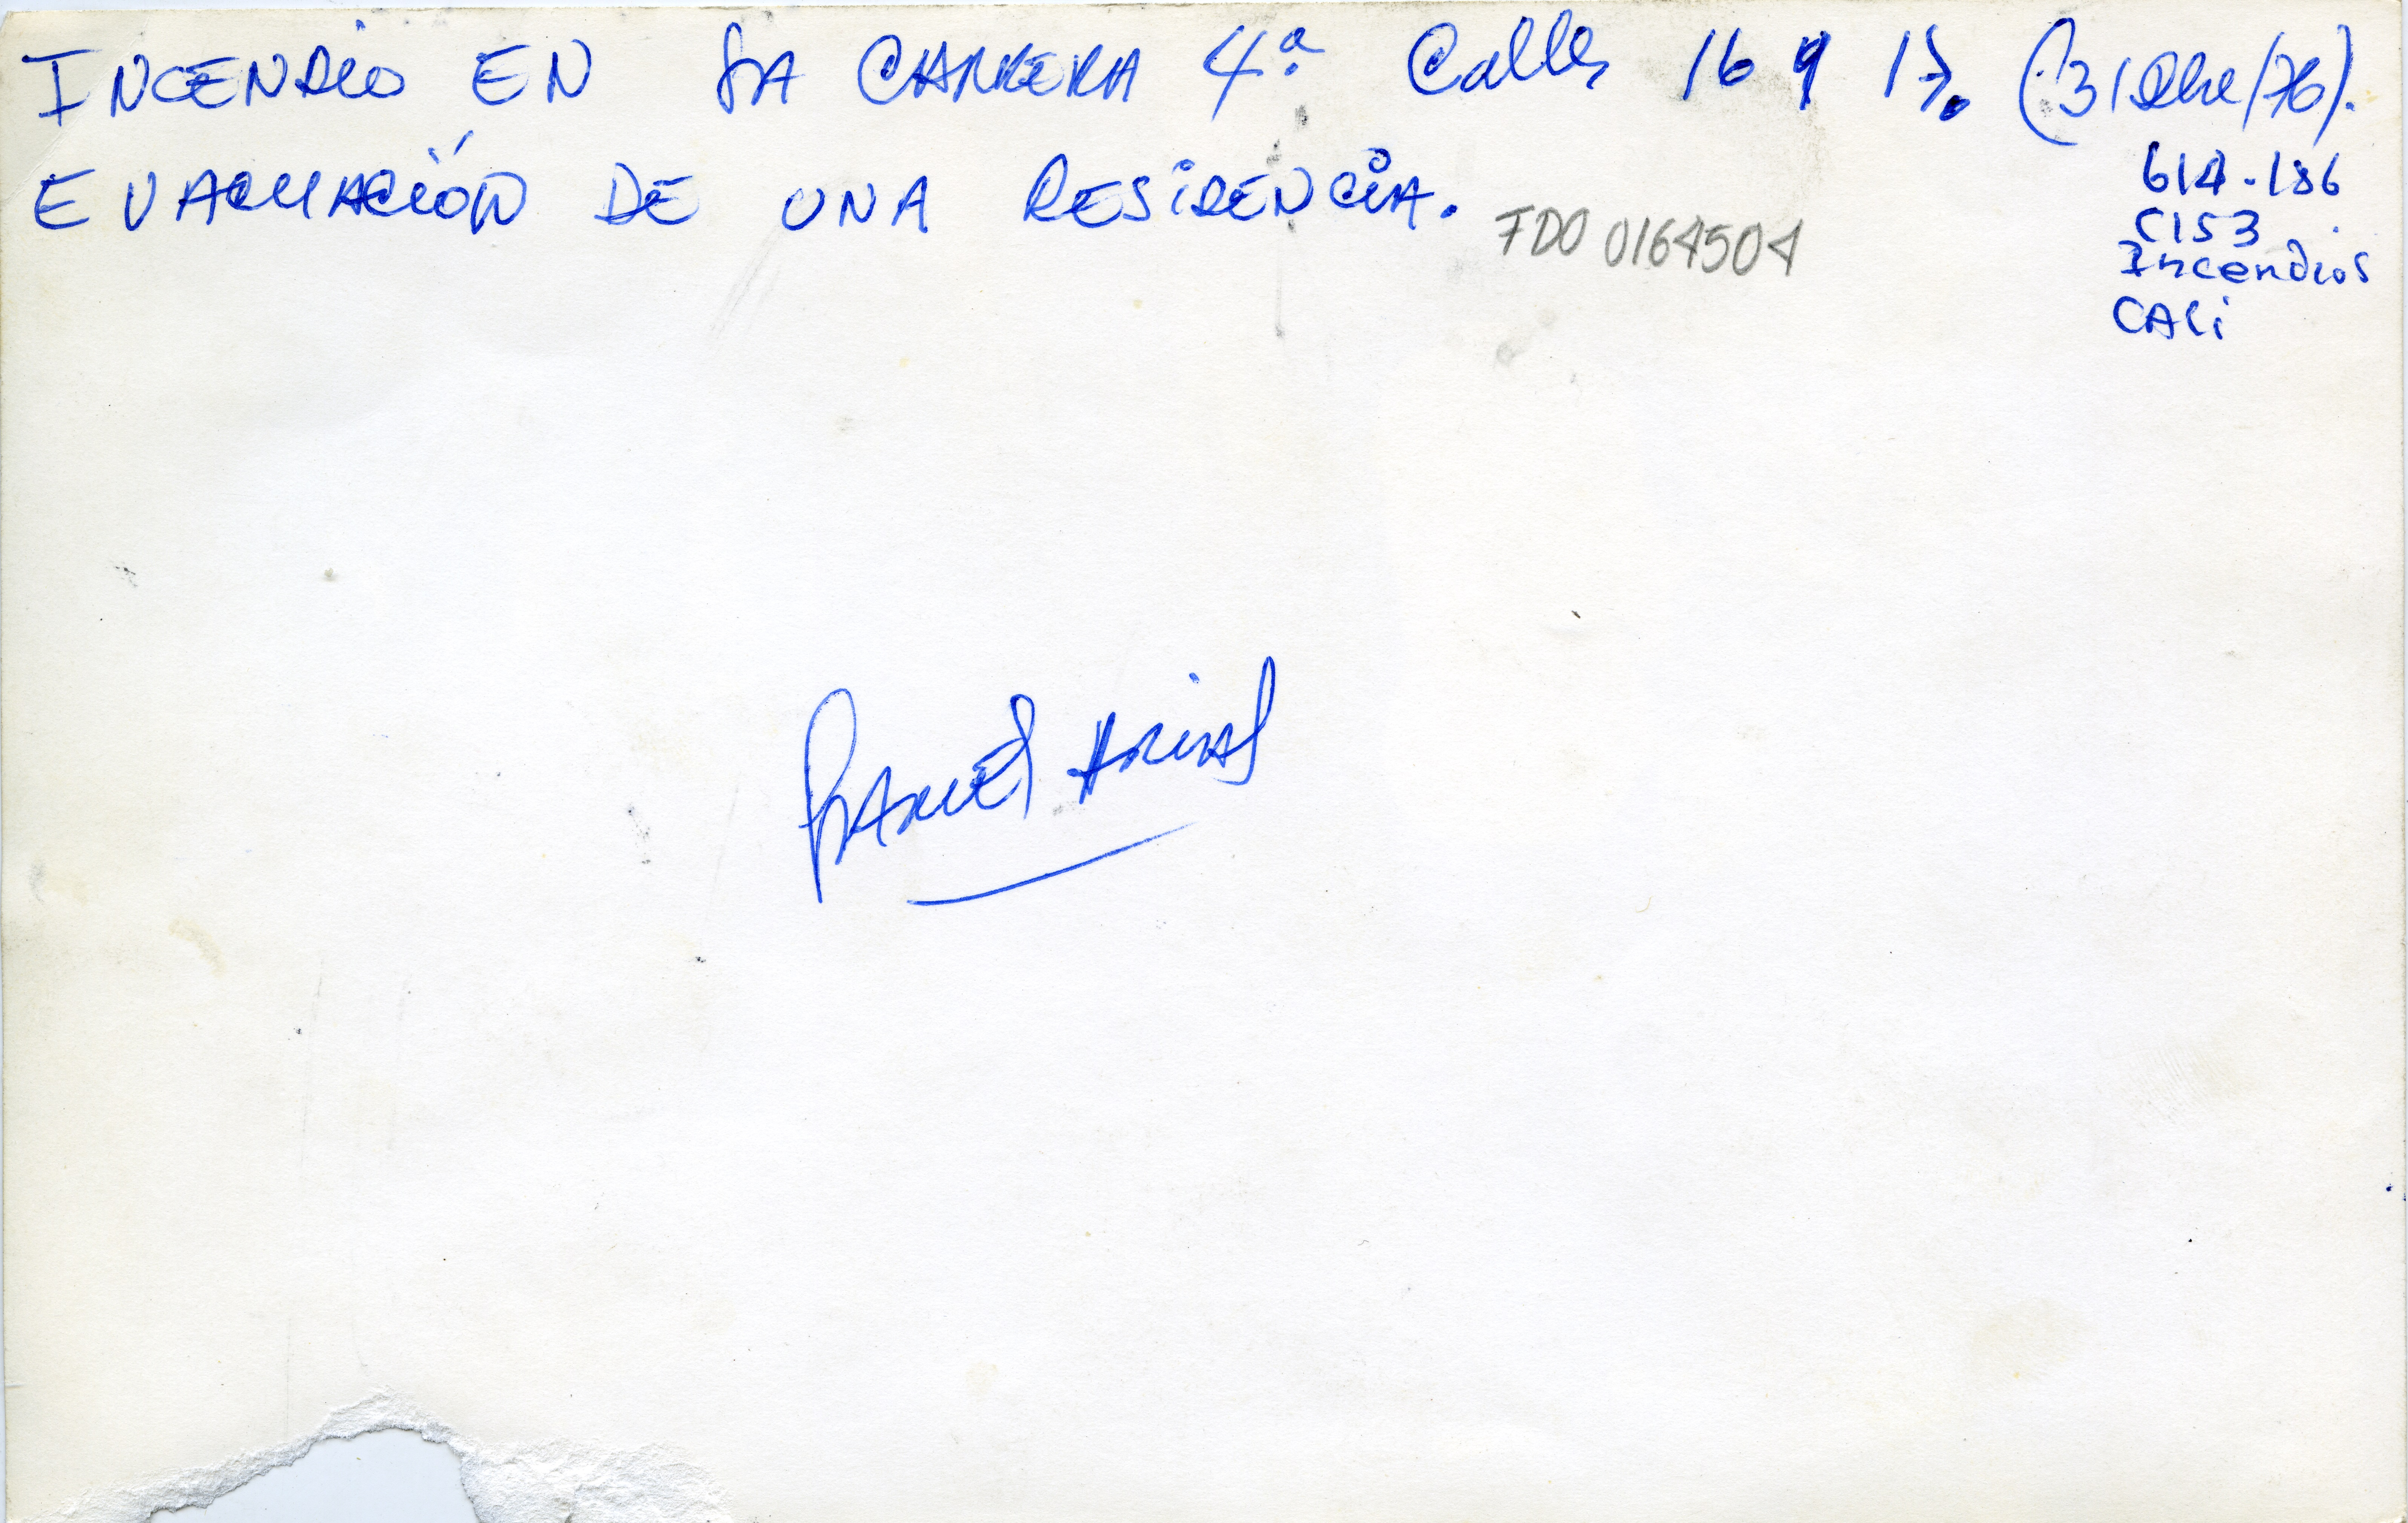 INCENDIO EN LA CARRERA 4ª Calles 16 y 17. (31 Dbre/76).
EVACUACIÓN DE UNA RESIDENCIA.
FDO 0164504
614-186
C153
Incendios
CALI
ARIAS